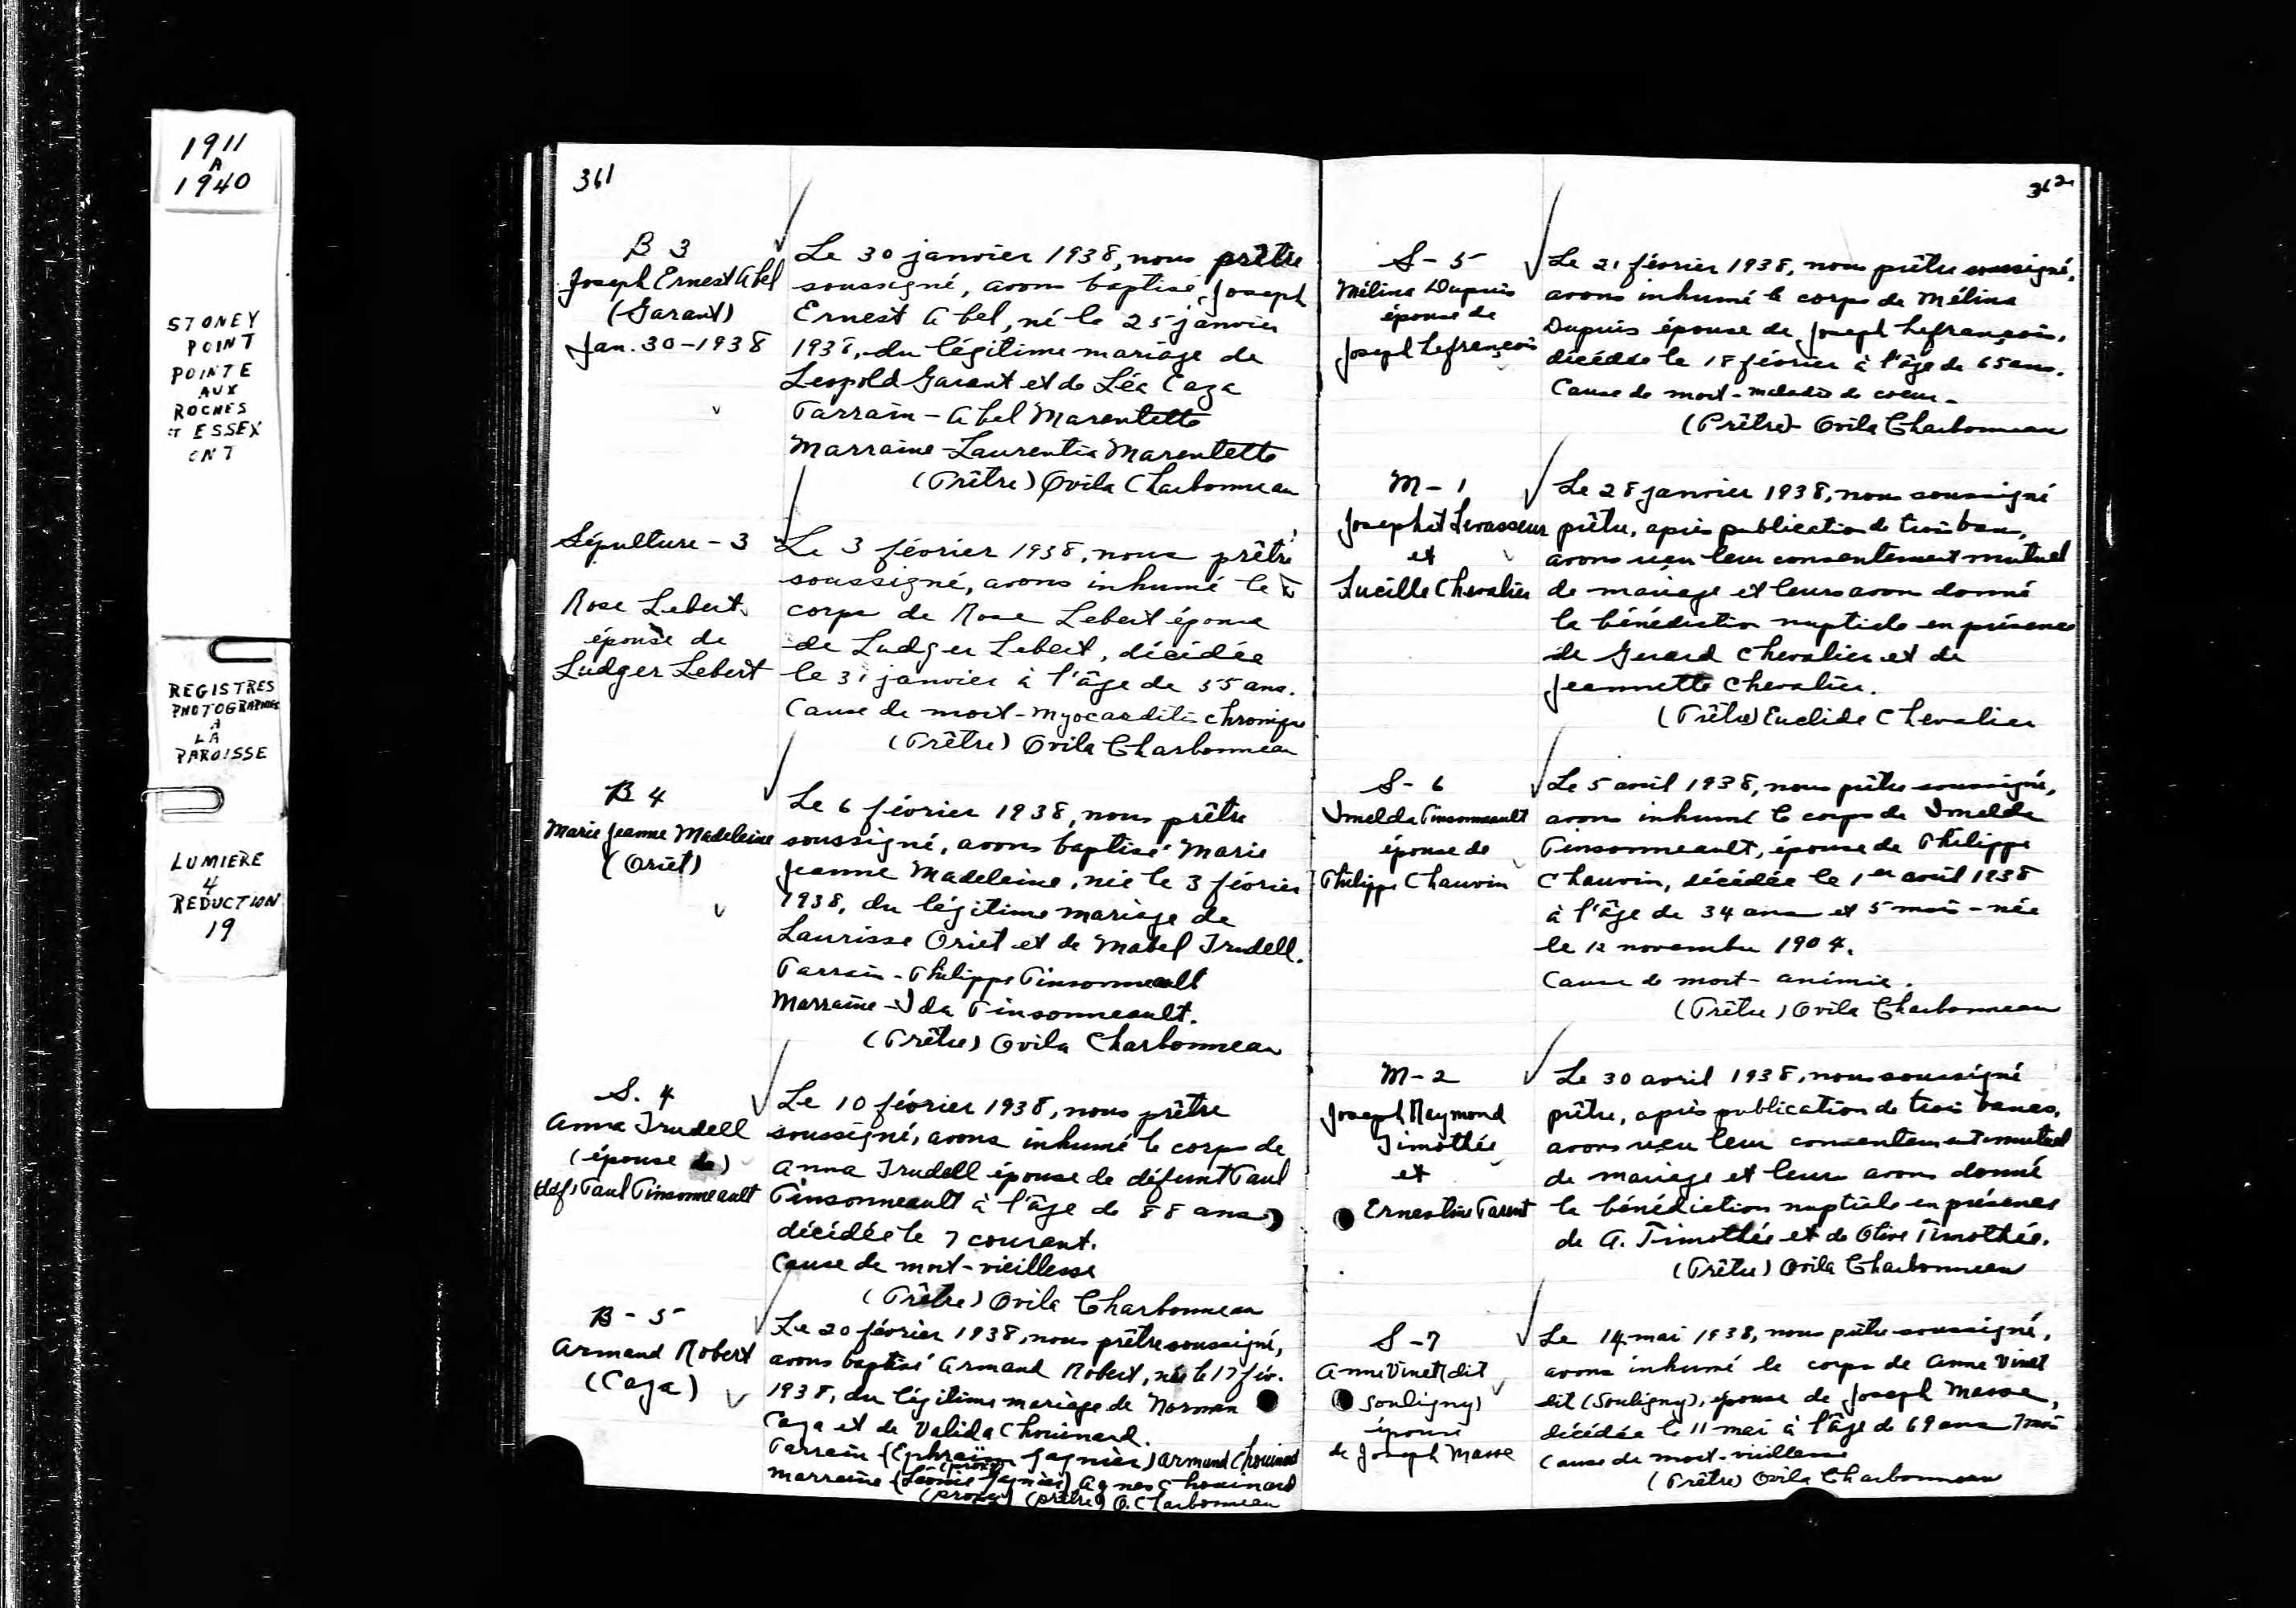 1911
A
1940
STONEY
POINT
POINTE
AUX
ROCHES
CT ESSEX
ONT
REGISTRES
PHOTOGRAPHIES
A
LA
PAROISSE
LUMIERE
4
REDUCTION
19
361
B 3
Joseph Ernest Abel
(Garant)
Jan. 30-1938
Le 30 janvier 1938, nous prêtre
soussigné, avons baptisé, Joseph
Ernest Abel, né le 25 janvier
1938, du légitime mariage de
Leopold Garant et de Léa Caza
Parrain - Abel Marentette
Marraine - Laurentia Marentette
(Prêtre) Ovila Charbonneau
Sépulture - 3
Rose Lebert
épouse de
Ludger Lebert
Le 3 février 1938, nous prêtre
soussigné, avons inhumé le
corps de Rose Lebert épouse
de Ludger Lebert, décédée
le 31 janvier à l'âge de 55 ans.
Cause de mort - myocardite chronique
(Prêtre) Ovila Charbonneau
B 4
Marie Jeanne Madeleine
(Oriet)
Le 6 février 1938, nous prêtre
soussigné, avons baptisé Marie
Jeanne Madeleine, née le 3 février
1938, du légitime mariage de
Laurisse Oriet et de Mabel Trudell.
Parrain - Philippe Pinsonneault
Marraine - Ida Pinsonneault.
(Prêtre) Ovila Charbonneau
S. 4
Anna Trudell
(épouse de)
(déf) Paul Pinsonneault
Le 10 février 1938, nous prêtre
soussigné, avons inhumé le corps de
Anna Trudell épouse de défunt Paul
Pinsonneault à l'âge de 88 ans
décédée le 7 courant.
Cause de mort - vieillesse
(Prêtre) Ovila Charbonneau
B - 5
Armand Robert
(Caza)
Le 20 février 1938, nous prêtre soussigné,
avons baptisé Armand Robert, né le 17 fév.
1938, du légitime mariage de Norman
Caza et de Valida Chouinard.
Parrain - (Ephraïm Gagnier) Armand Chouinard
(proxy)
Marraine - (Léonie Gagnier) Agnes Chouinard
(proxy) (prêtre) O. Charbonneau
362
S - 5
Mélina Dupuis
épouse de
Joseph Lefrançois
Le 21 février 1938, nous prêtre soussigné,
avons inhumé le corps de Mélina
Dupuis épouse de Joseph Lefrançois,
décédée le 18 février à l'âge de 65 ans.
Cause de mort - maladie de coeur -
(Prêtre) - Ovila Charbonneau
M - 1
Josephat Levasseur
et
Lucille Chevalier
Le 28 janvier 1938, nous soussigné
prêtre, après publication de trois bans,
avons reçu leur consentement mutuel
de mariage et leurs avons donné
la bénédiction nuptiale en présence
de Gerard Chevalier et de
Jeannette Chevalier.
(Prêtre) Euclide Chevalier
S - 6
Imelda Pinsonneault
épouse de
Philippe Chauvin
Le 5 avril 1938, nous prêtre soussigné,
avons inhumé le corps de Imelda
Pinsonneault, épouse de Philippe
Chauvin, décédée le 1er avril 1938
à l'âge de 34 ans et 5 mois - née
le 12 novembre 1904.
Cause de mort - anémie.
(Prêtre) Ovila Charbonneau
M - 2
Joseph Raymond
Timothée
et
Ernestine Parent
Le 30 avril 1938, nous soussigné
prêtre, après publication de trois bancs,
avons reçu leur consentement mutuel
de mariage et leurs avons donné
la bénédiction nuptiale en présence
de A. Timothée et de Olive Timothée.
(Prêtre) Ovila Charbonneau
S - 7
Anne Vinet (dit
Souligny)
épouse
de Joseph Masse
Le 14 mai 1938, nous prêtre soussigné,
avons inhumé le corps de Anne Vinet
dit (Souligny), épouse de Joseph Masse,
décédée le 11 mai à l'âge de 69 ans 7 mois
Cause de mort - vieillesse
(Prêtre) Ovila Charbonneau